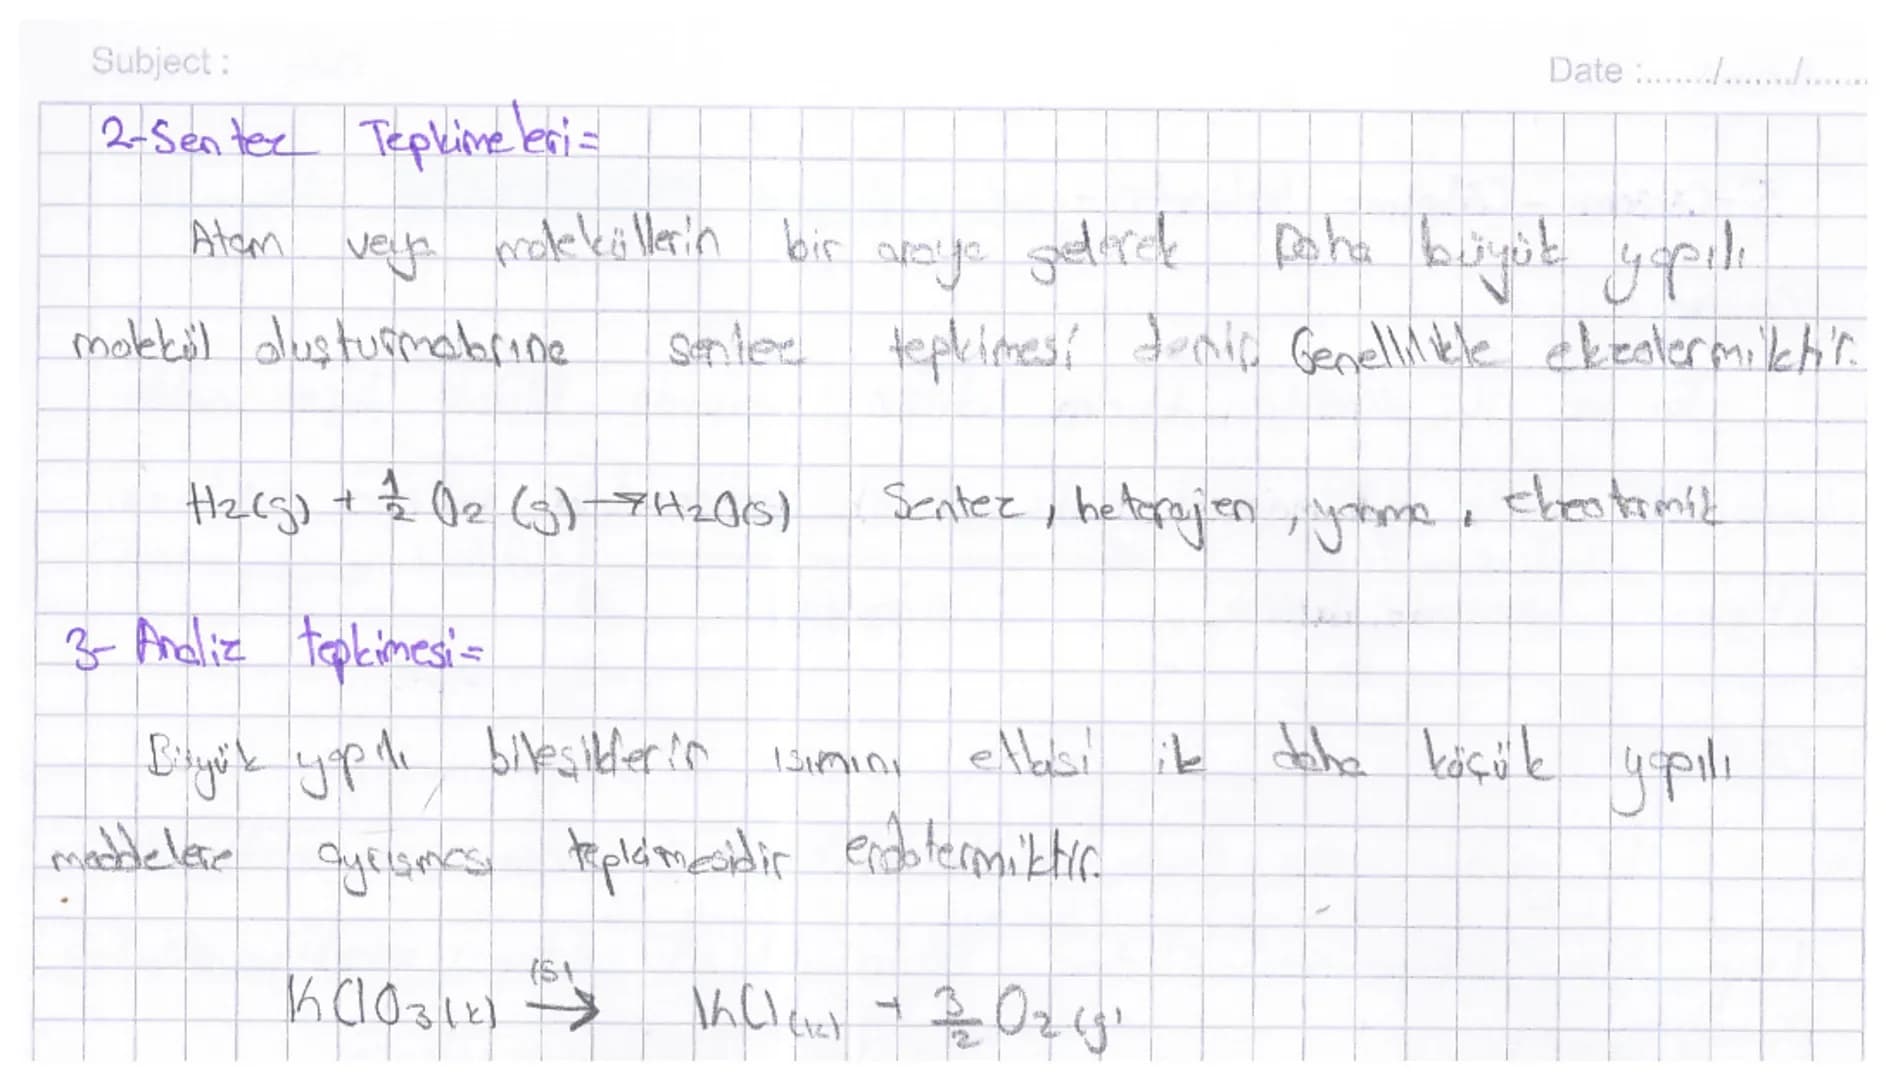 Subject :
Date :......./......./.......
2-Sentez Tepkimeleri=
Atom veya moleküllerin bir araya gelerek Daha büyük yapılı
molekül oluşturmalarına sentez tepkimesi denir. Genellikle ekzotermiktir.
H2(g) + 1/2 O2 (g) → H2O(s) Sentez, heterojen, yanma, Ekzotermik
3- Analiz tepkimesi=
Büyük yapılı bileşiklerin ısımını etkisi ile daha küçük yapılı
maddelere ayrışması tepkimesidir endotermiktir.
KClO3(k) ısı → KCl(k) + 3/2 O2(g)